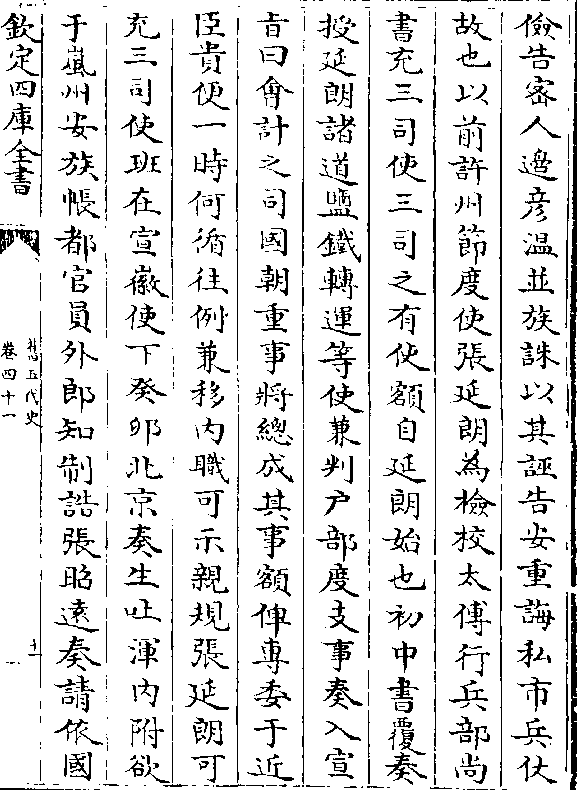 儉告密人邊彦温並族誅以其誣告安重誨私市兵仗
故也以前許州節度使張延朗為檢校太傅行兵部尚
書充三司使三司之有使額自延朗始也初中書覆奏
授延朗諸道鹽鐵轉運等使兼判户部度支事奏入宣
旨曰會計之司國朝重事將總成其事額俾專委于近
臣貴便一時何循往例兼移内職可示親規張延朗可
充三司使班在宣徽使下癸卯北京奏生吐渾内附欲
于嵐州安族帳都官員外郎知制誥張昭遠奏請依國
欽定四庫全書
舊五代史
卷四十一
十一